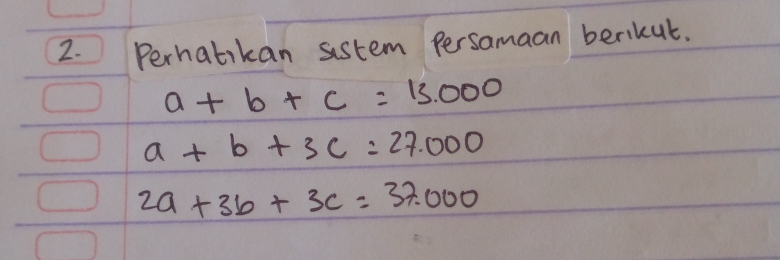 2. Perhatikan sistem Persamaan berikut.
a + b + c = 13.000
a + b + 3c = 27.000
2a + 3b + 3c = 37.000